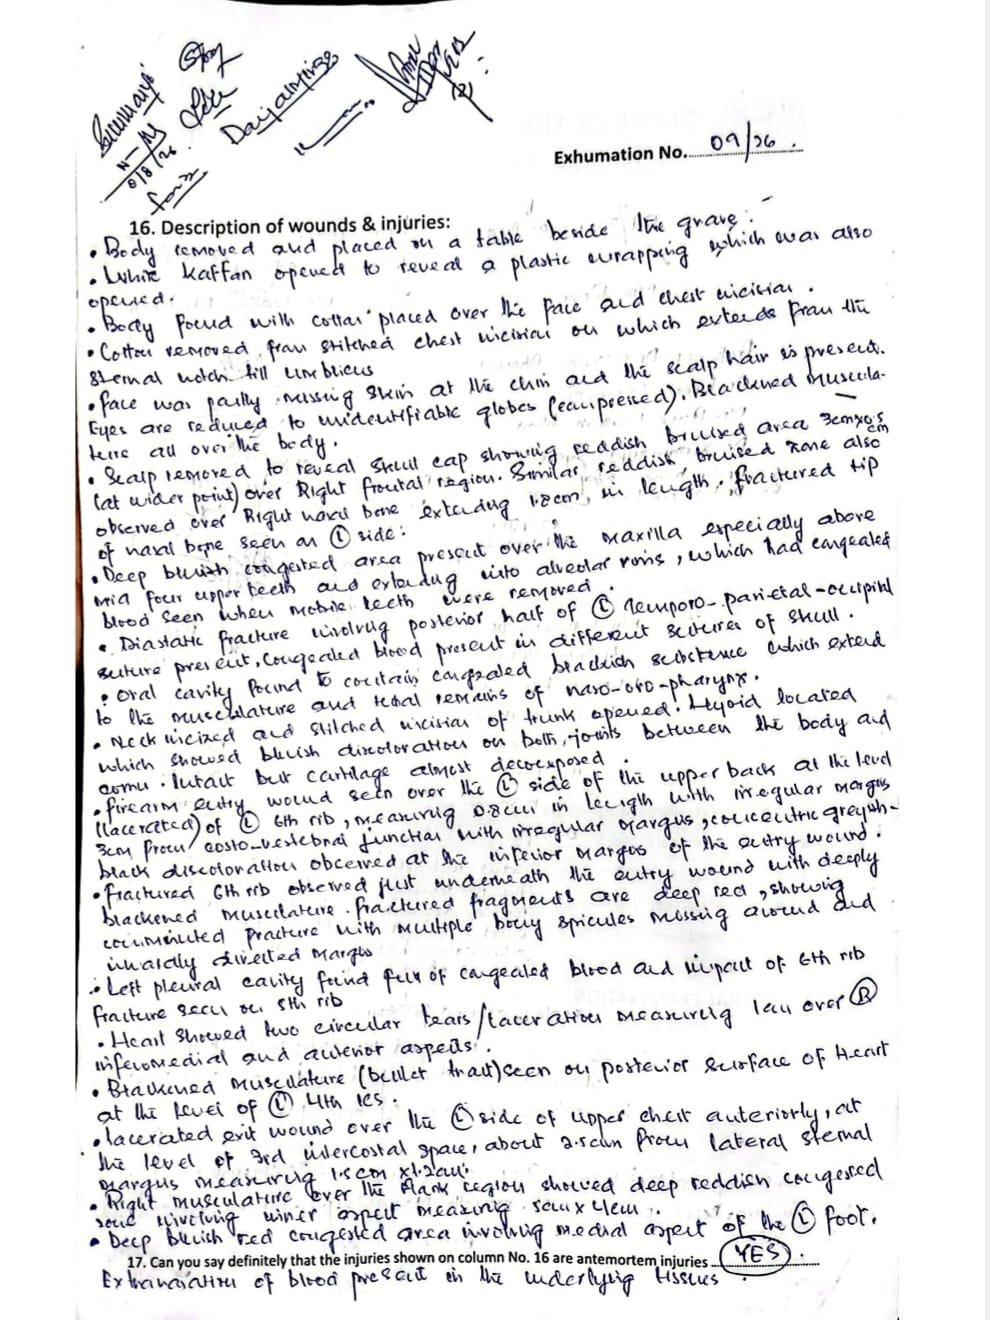 Summaya
Dar
(2)
Exhumation No. 09/26.
16. Description of wounds & injuries:
• Body removed and placed on a table beside the grave.
• White kaffan opened to reveal a plastic wrapping which was also
opened.
• Body found with cotton placed over the face and chest incision.
• Cotton removed from stitched chest incision on which extends from the
sternal notch till umblicus
• face was partly missing skin at the chin and the scalp hair is present.
Eyes are reduced to unidentifiable globes (compressed). Blackened muscula-
ture all over the body.
• Scalp removed to reveal skull cap showing reddish bruised area 3cmx0.5cm
(at wider point) over Right frontal region. Similar reddish bruised zone also
observed over Right nasal bone extending 1.8cm in length. fractured tip
of nasal bone seen on (L) side.
• Deep bluish congested area present over the maxilla especially above
mid four upper teeth and extending into alveolar rims, which had congealed
blood seen when mobile teeth were removed.
• Diastatic fracture involving posterior half of (L) Temporo-parietal-occipital
suture present, Congealed blood present in different sutures of skull.
• Oral cavity found to contain congealed blackish substence which extend
to the musculature and remains of naso-oro-pharynx.
• Neck incized and stitched incision of trunk opened. Hyoid located
which showed bluish discoloration on both joints between the body and
cornu. Intact but cartilage almost decomposed.
• firearm entry wound seen over the (L) side of the upper back at the level
(lacerated) of (L) 6th rib, measuring 0.8cm in length with irregular margins
3cm from costo-vertebral junction with irregular margins, concentric greyish-
black discoloration observed at the inferior margins of the entry wound.
• Fractured 6th rib observed just underneath the entry wound with deeply
blackened musculature. fractured fragments are deep red, showing
comminuted fracture with multiple bony spicules missing around and
inwardly directed margins
• Left pleural cavity found full of congealed blood and impact of 6th rib
fracture seen on 5th rib
• Heart showed two circular tears/laceration measuring 1cm over (R)
inferomedial and anterior aspects.
• Blackened musculature (bullet tract) seen on posterior surface of Heart
at the level of (L) 4th ICS.
• lacerated exit wound over the (L) side of upper chest anteriorly, at
the level of 3rd intercostal space, about 2.5cm from lateral sternal
margins measuring 1.5cm x1.2cm.
• Right musculature over the flank region showed deep reddish congested
zone involving inner aspect measuring 5cmx4cm.
• Deep bluish red congested area involving medial aspect of the (L) foot.
17. Can you say definitely that the injuries shown on column No. 16 are antemortem injuries YES.
Extravasation of blood present in the underlying tissues.